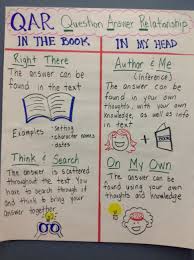 QAR Question Answer Relationship
IN THE BOOK
Right There
The answer can be
found in the text
Examples - setting
- character names
- dates
Think & Search
The answer is scattered
throughout the text. You
have to search through it
and think to bring your
answer together.
IN MY HEAD
Author & Me
(Inference)
The answer can be
found in your own
thoughts, with your own
knowledge, as well as info
in text
On My Own
The answer can be
found using your own
thoughts and knowledge